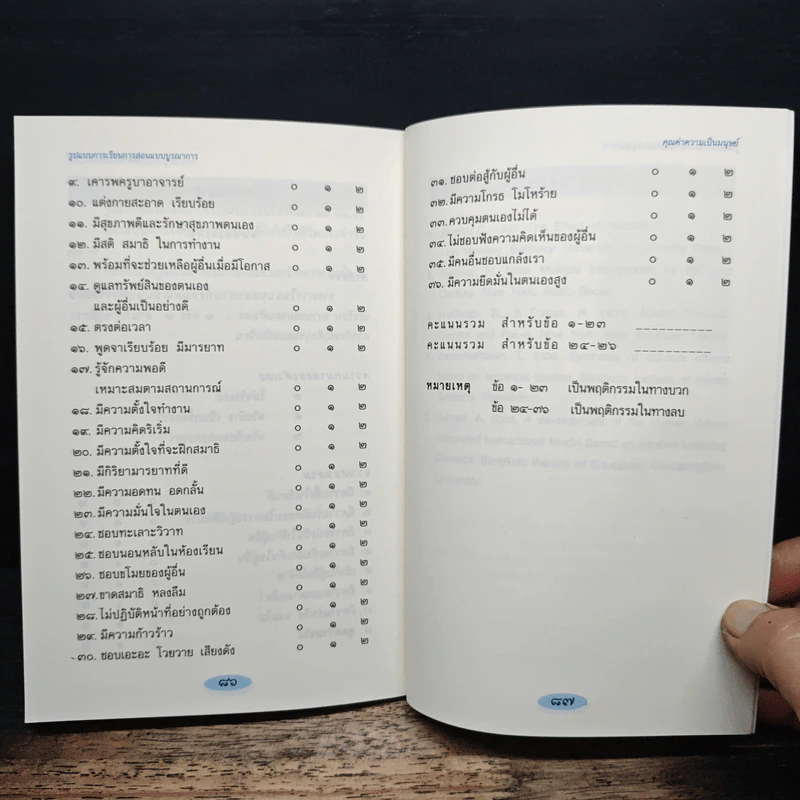 รูปแบบการเรียนการสอนแบบบูรณาการ
๙. เคารพครูบาอาจารย์ ๐ ๑ ๒
๑๐. แต่งกายสะอาด เรียบร้อย ๐ ๑ ๒
๑๑. มีสุขภาพดีและรักษาสุขภาพตนเอง ๐ ๑ ๒
๑๒. มีสติ สมาธิ ในการทำงาน ๐ ๑ ๒
๑๓. พร้อมที่จะช่วยเหลือผู้อื่นเมื่อมีโอกาส ๐ ๑ ๒
๑๔. ดูแลทรัพย์สินของตนเอง
และผู้อื่นเป็นอย่างดี ๐ ๑ ๒
๑๕. ตรงต่อเวลา ๐ ๑ ๒
๑๖. พูดจาเรียบร้อย มีมารยาท ๐ ๑ ๒
๑๗. รู้จักความพอดี
เหมาะสมตามสถานการณ์ ๐ ๑ ๒
๑๘. มีความตั้งใจทำงาน ๐ ๑ ๒
๑๙. มีความคิดริเริ่ม ๐ ๑ ๒
๒๐. มีความตั้งใจที่จะฝึกสมาธิ ๐ ๑ ๒
๒๑. มีกิริยามารยาทที่ดี ๐ ๑ ๒
๒๒. มีความอดทน อดกลั้น ๐ ๑ ๒
๒๓. มีความมั่นใจในตนเอง ๐ ๑ ๒
๒๔. ชอบทะเลาะวิวาท ๐ ๑ ๒
๒๕. ชอบนอนหลับในห้องเรียน ๐ ๑ ๒
๒๖. ชอบขโมยของผู้อื่น ๐ ๑ ๒
๒๗. ขาดสมาธิ หลงลืม ๐ ๑ ๒
๒๘. ไม่ปฏิบัติหน้าที่อย่างถูกต้อง ๐ ๑ ๒
๒๙. มีความก้าวร้าว ๐ ๑ ๒
๓๐. ชอบเอะอะ โวยวาย เสียงดัง ๐ ๑ ๒
๘๖
คุณค่าความเป็นมนุษย์
๓๑. ชอบต่อสู้กับผู้อื่น ๐ ๑ ๒
๓๒. มีความโกรธ โมโหร้าย ๐ ๑ ๒
๓๓. ควบคุมตนเองไม่ได้ ๐ ๑ ๒
๓๔. ไม่ชอบฟังความคิดเห็นของผู้อื่น ๐ ๑ ๒
๓๕. มีคนอื่นชอบแกล้งเรา ๐ ๑ ๒
๓๖. มีความยึดมั่นในตนเองสูง ๐ ๑ ๒
คะแนนรวม สำหรับข้อ ๑-๒๓ __________
คะแนนรวม สำหรับข้อ ๒๔-๒๖ __________
หมายเหตุ ข้อ ๑- ๒๓ เป็นพฤติกรรมในทางบวก
ข้อ ๒๔-๓๖ เป็นพฤติกรรมในทางลบ
๘๗